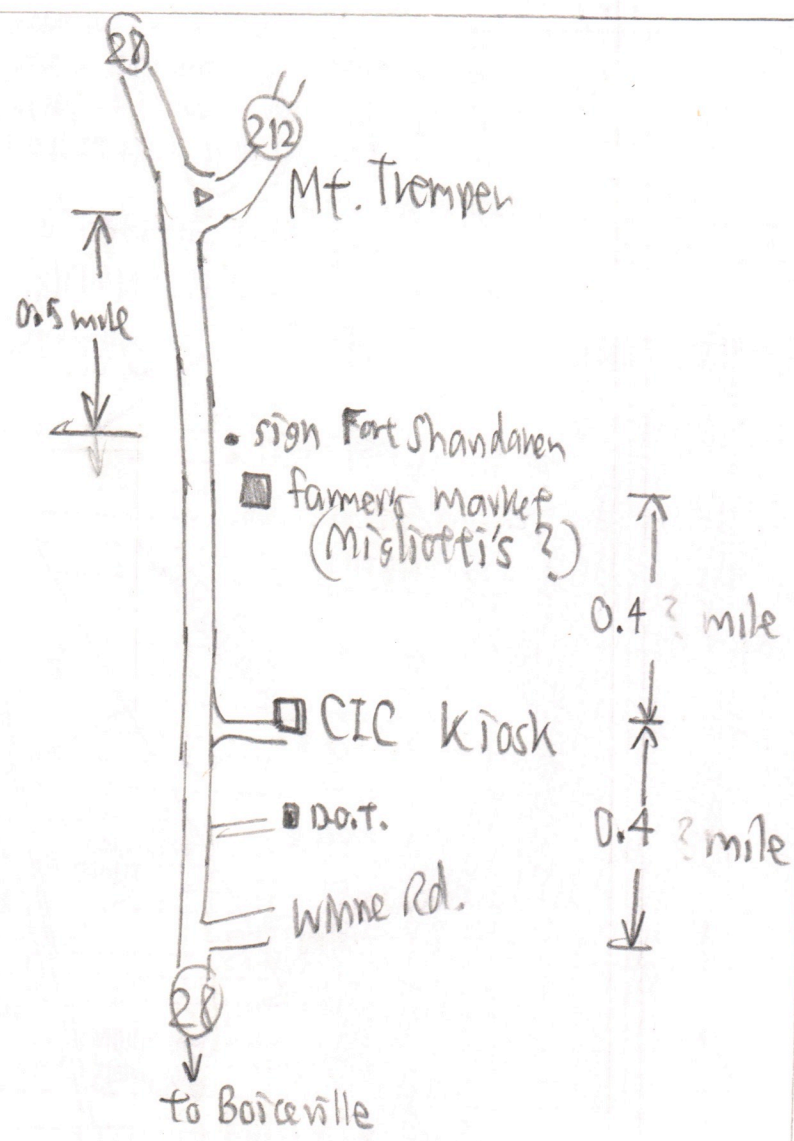 28
212
Mt. Tremper
0.5 mile
sign Fort Shandaken
farmer's market
(Migliotti's ?)
0.4 ? mile
CIC Kiosk
D.O.T.
0.4 ? mile
Winne Rd.
28
to Boiceville